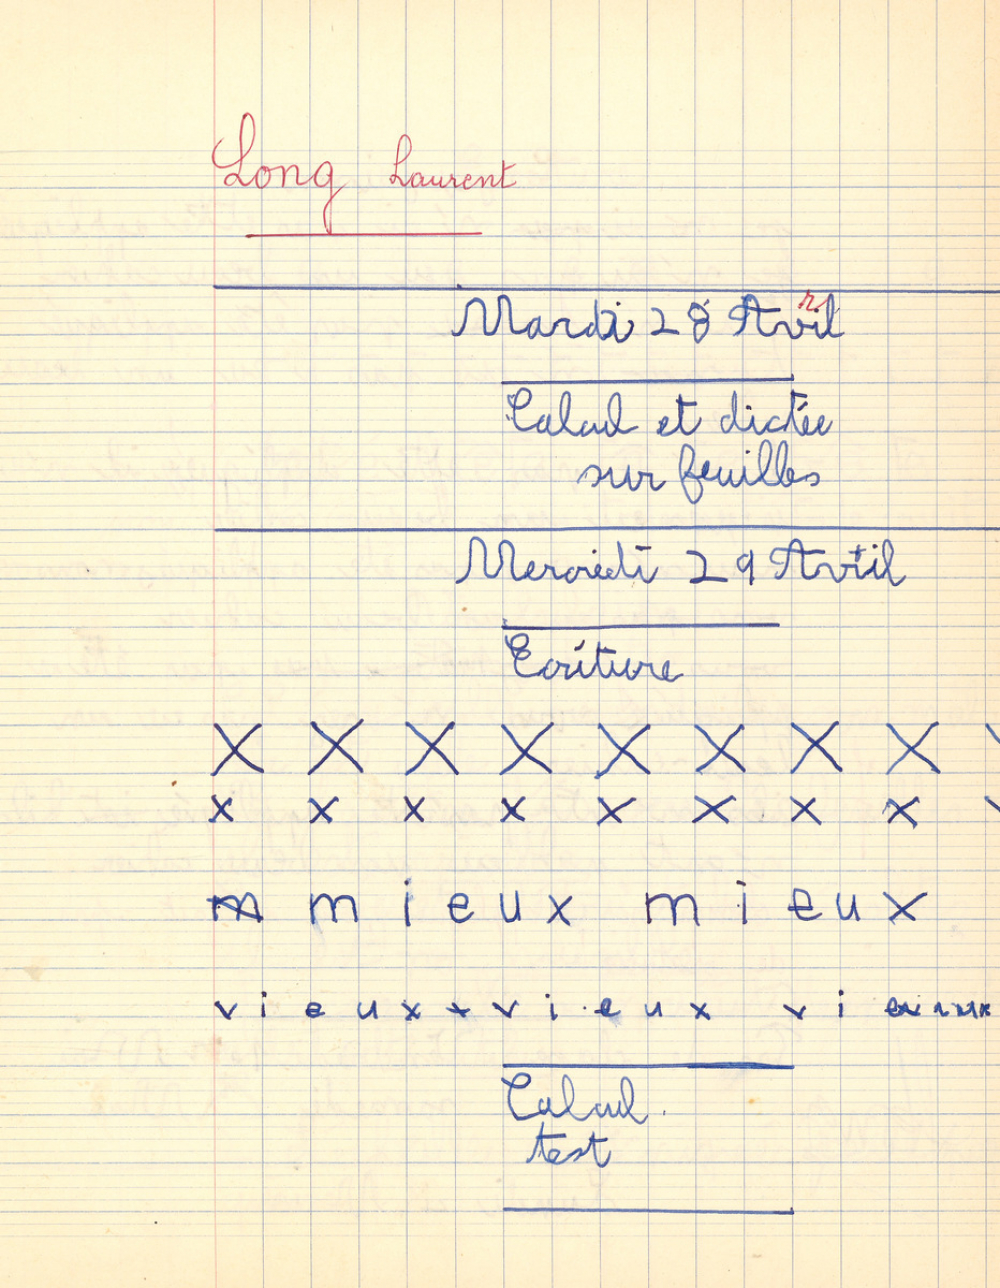 Long Laurent
Mardi 28 Avril
Calcul et dictée
sur feuilles
Mercredi 29 Avril
Ecriture
X X X X X X X X
x x x x x x x x
m m i e u x m i e u x
v i e u x x v i e u x v i
Calcul
test